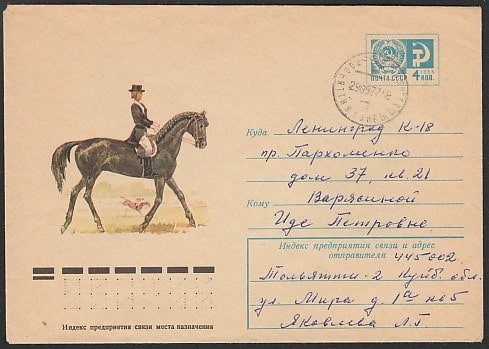 ПОЧТА СССР 1966
4 КОП.
Куда Ленинград К-18
пр. Пархоменко
дом 37, кв. 21
Кому Варясиной
Иде Петровне
Индекс предприятия связи и адрес
отправителя 445002
Тольятти-2 Куйб. обл.
ул. Мира д. 1а кв 5
Яковлева Л Г
Индекс предприятия связи места назначения